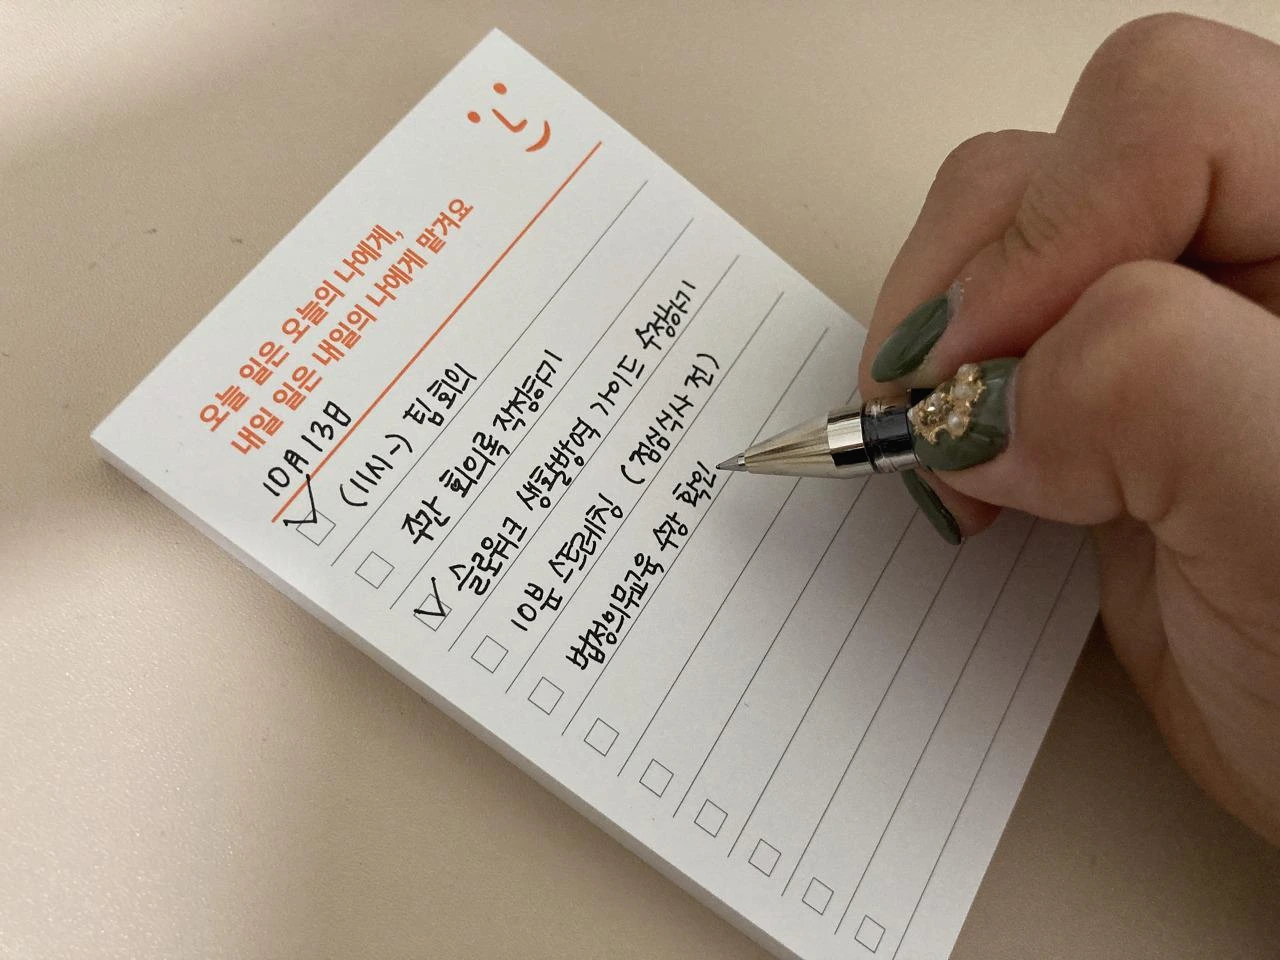 오늘 일은 오늘의 나에게,
내일 일은 내일의 나에게 맡겨요
10月 13日
(11시~) 팀 회의
주간 회의록 작성하기
슬로워크 생활방역 가이드 수정하기
10분 스트레칭 (점심식사 전)
법정의무교육 수강 확인